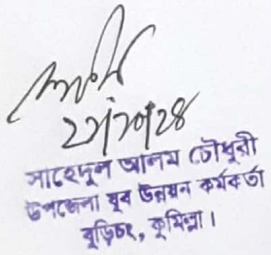 ২২/১০/২৪
সাহেদুল আলম চৌধুরী
উপজেলা যুব উন্নয়ন কর্মকর্তা
বুড়িচং, কুমিল্লা।